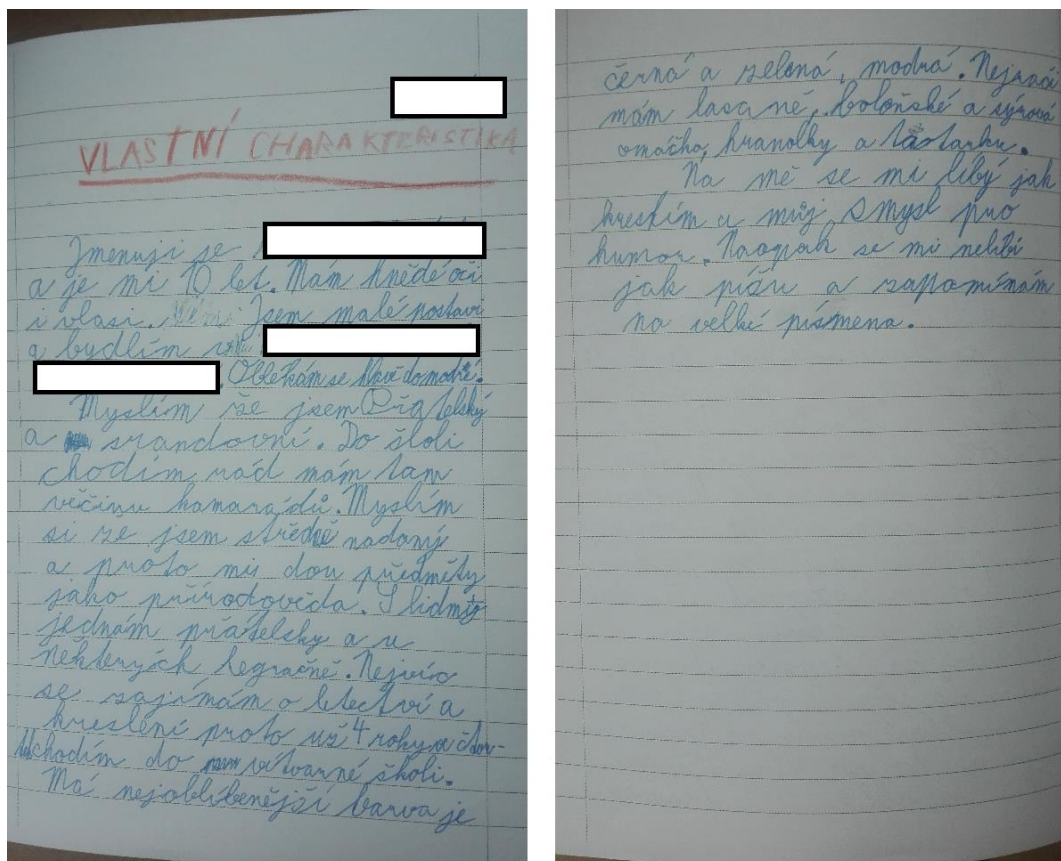 VLASTNÍ CHARAKTERISTIKA
Jmenuji se
a je mi 10 let. Mám hnědé oči
i vlasi. Jsem malé postavi
a bydlím
. Oblékám se hlavě do modré.
Myslím že jsem Přátelský
a srandovní. Do školi
chodím rád mám tam
věčinu kamarádů. Myslím
si že jsem střědně nadaný
a proto mis dou předměty
jako přírodověda. S lidmi
jednám přátelsky a u
některých legračně. Nejvíc
se zajímám o letectví a
kreslení proto už 4 roky
chodím do vítvarné školi.
Má nejoblíbenější barva je
černá a zelená, modrá. Nejradši
mám lasané, boloňské a sýrová
omáčka, hranolky a tatarku.
Na mě se mi líbý jak
kreslím a můj smysl pro
humor. Naopak se mi nelíbí
jak píšu a zapomínám
na velké písmena.